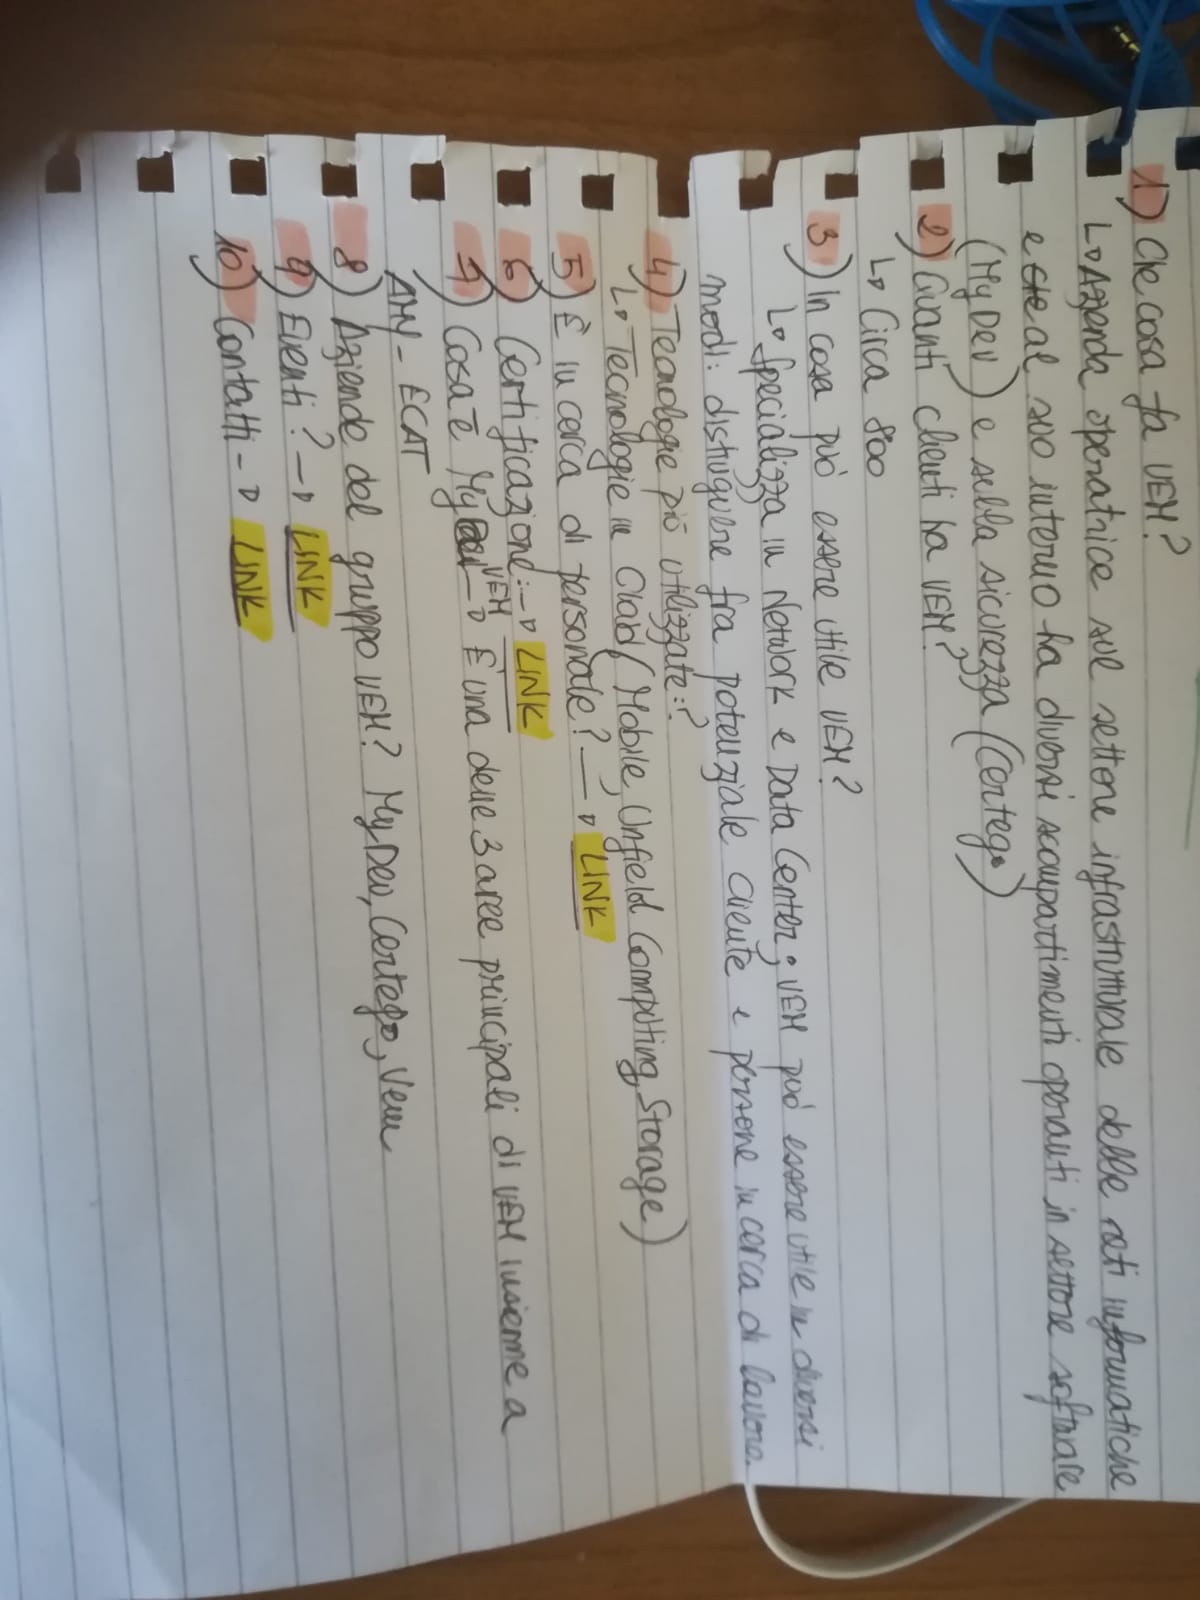 1) Che cosa fa VEM?
↳ Azienda operatrice sul settore infrastrutturale delle reti informatiche
e che al suo interno ha diversi scompartimenti operanti in settore software
(MyDev) e sulla sicurezza (Certego)
2) Quanti clienti ha VEM?
↳ Circa 800
3) In cosa può essere utile VEM?
↳ Specializza in Network e Data Center; VEM può essere utile in diversi
modi: distinguere fra potenziale cliente e persone in cerca di lavoro.
4) Tecnologie più utilizzate:?
↳ Tecnologie in Claud (Mobile, Unfield Computing, Storage)
5) È in cerca di personale? → LINK
6) Certificazione: → LINK
7) Cosa è My VEM → È una delle 3 aree principali di VEM insieme a
AMY - ECAT
8) Aziende del gruppo VEM? MyDev, Certego, Vem
9) Eventi? → LINK
10) Contatti → LINK